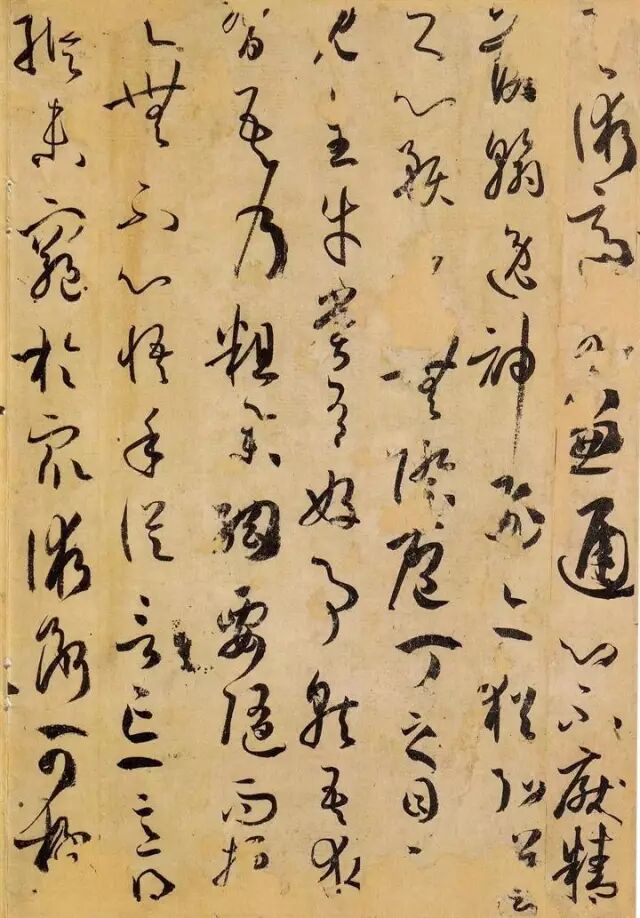 術高兼通心不厭精
落翰逸神飛亦猶弘羊
之心預無際庖丁之目不
見全牛嘗有好事就吾求
習吾乃粗舉綱要隨而授
之無不心悟手從言忘意得
縱未窮於眾術斷可極